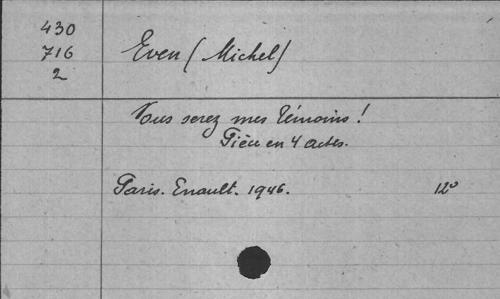 430
716
2
Even (Michel)
Vous serez mes témoins !
Pièce en 4 actes.
Paris. Enault. 1946. 12º